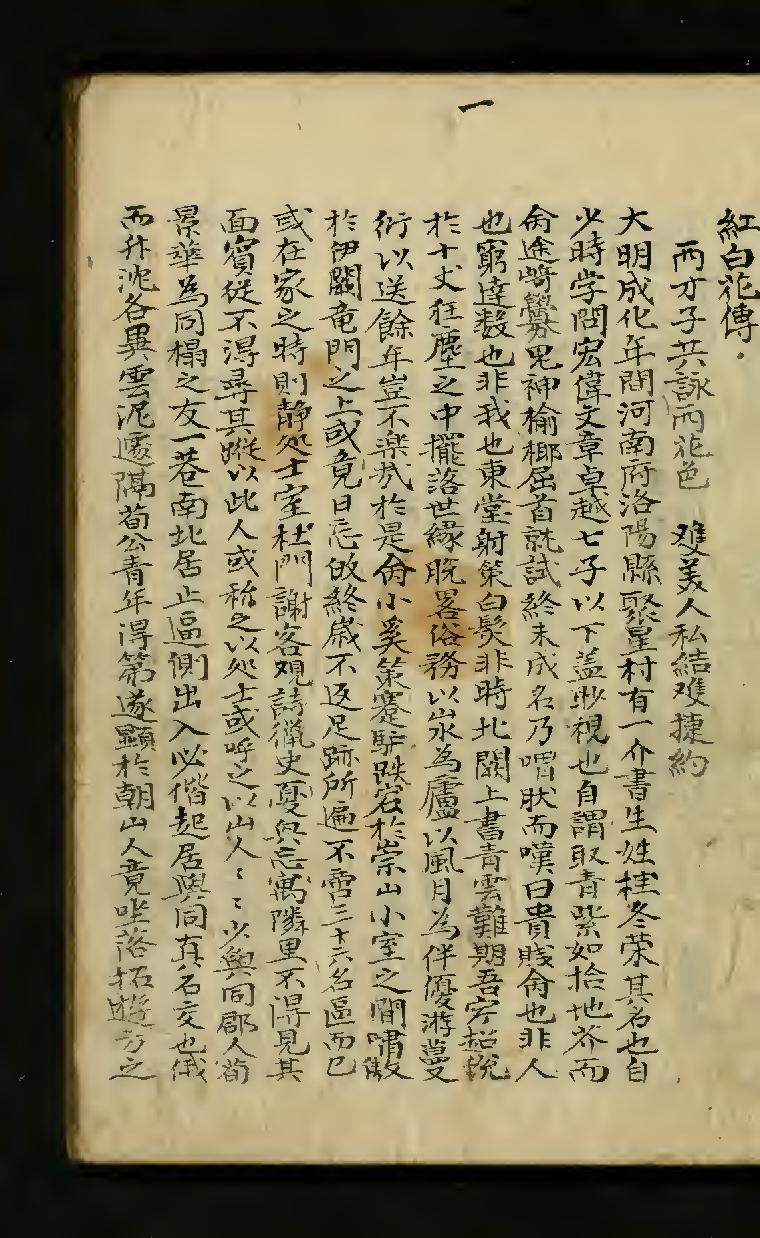 一
紅白花傳
兩才子共詠兩花色 双美人私結双捷約
大明成化年間河南府洛陽縣聚星村有一介書生姓桂冬荣其名也自
少時学問宏偉文章卓越七子以下盖眇視也自謂取青紫如拾地芥而
命途崎釁鬼神揄揶屈首就試終未成名乃喟肰而嘆曰貴賤命也非人
也窮達数也非我也東堂射策白髮非時北闕上書青雲難期吾寧超脫
於十丈狂塵之中擺落世緣脫畧俗務以泉為廬以風月為伴優游蔓
衍以送餘年豈不楽㢤於是命小奚策蹇馿跌宕於崇山小室之間嘯傲
於伊闕竜門之上或竟日忘皈終歲不返足跡所遍不啻三十六名區而已
或在家之時則静処士室杜門謝客观詩獵史憂與忘寓隣里不淂見其
面賓従不淂尋其蹤以此人或称之以処士或呼之以山人〻〻少與同郡人荀
景華為同榻之友一巷南北居止逼側出入必偕起居與同真名交也俄
而升沈各異雲泥邈隔荀公青年淂第遂顯於朝山人竟坐落拓遊方之